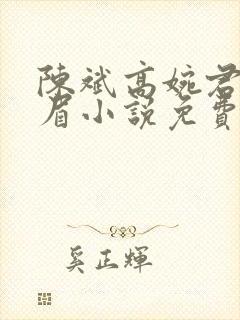 陳斌高婉君
眉小說免費
奚正輝